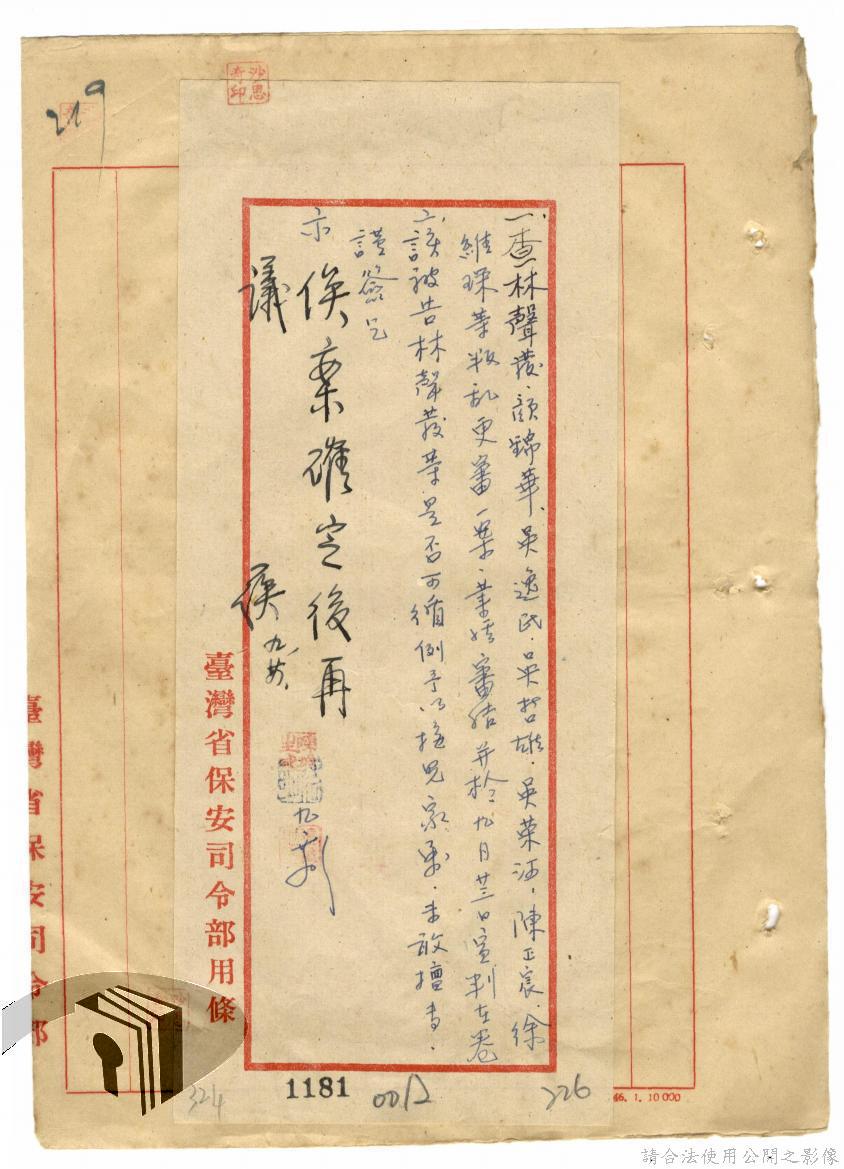 一、查林聲發、顏錦華、吳逸民、吳哲雄、吳榮河、陳正宸、徐
維琛等叛亂更審一案、業經審結并於九月廿三日宣判在卷
二、該被告林聲發等是否可循例予以接見家屬、未敢擅專、
謹簽乞
示
俟案確定後再
議
侯 九、廿
臺灣省保安司令部用條
臺灣省保安司令部
沙思奇印
219
324
1181
0012
226
46. 1. 10000
請合法使用公開之影像